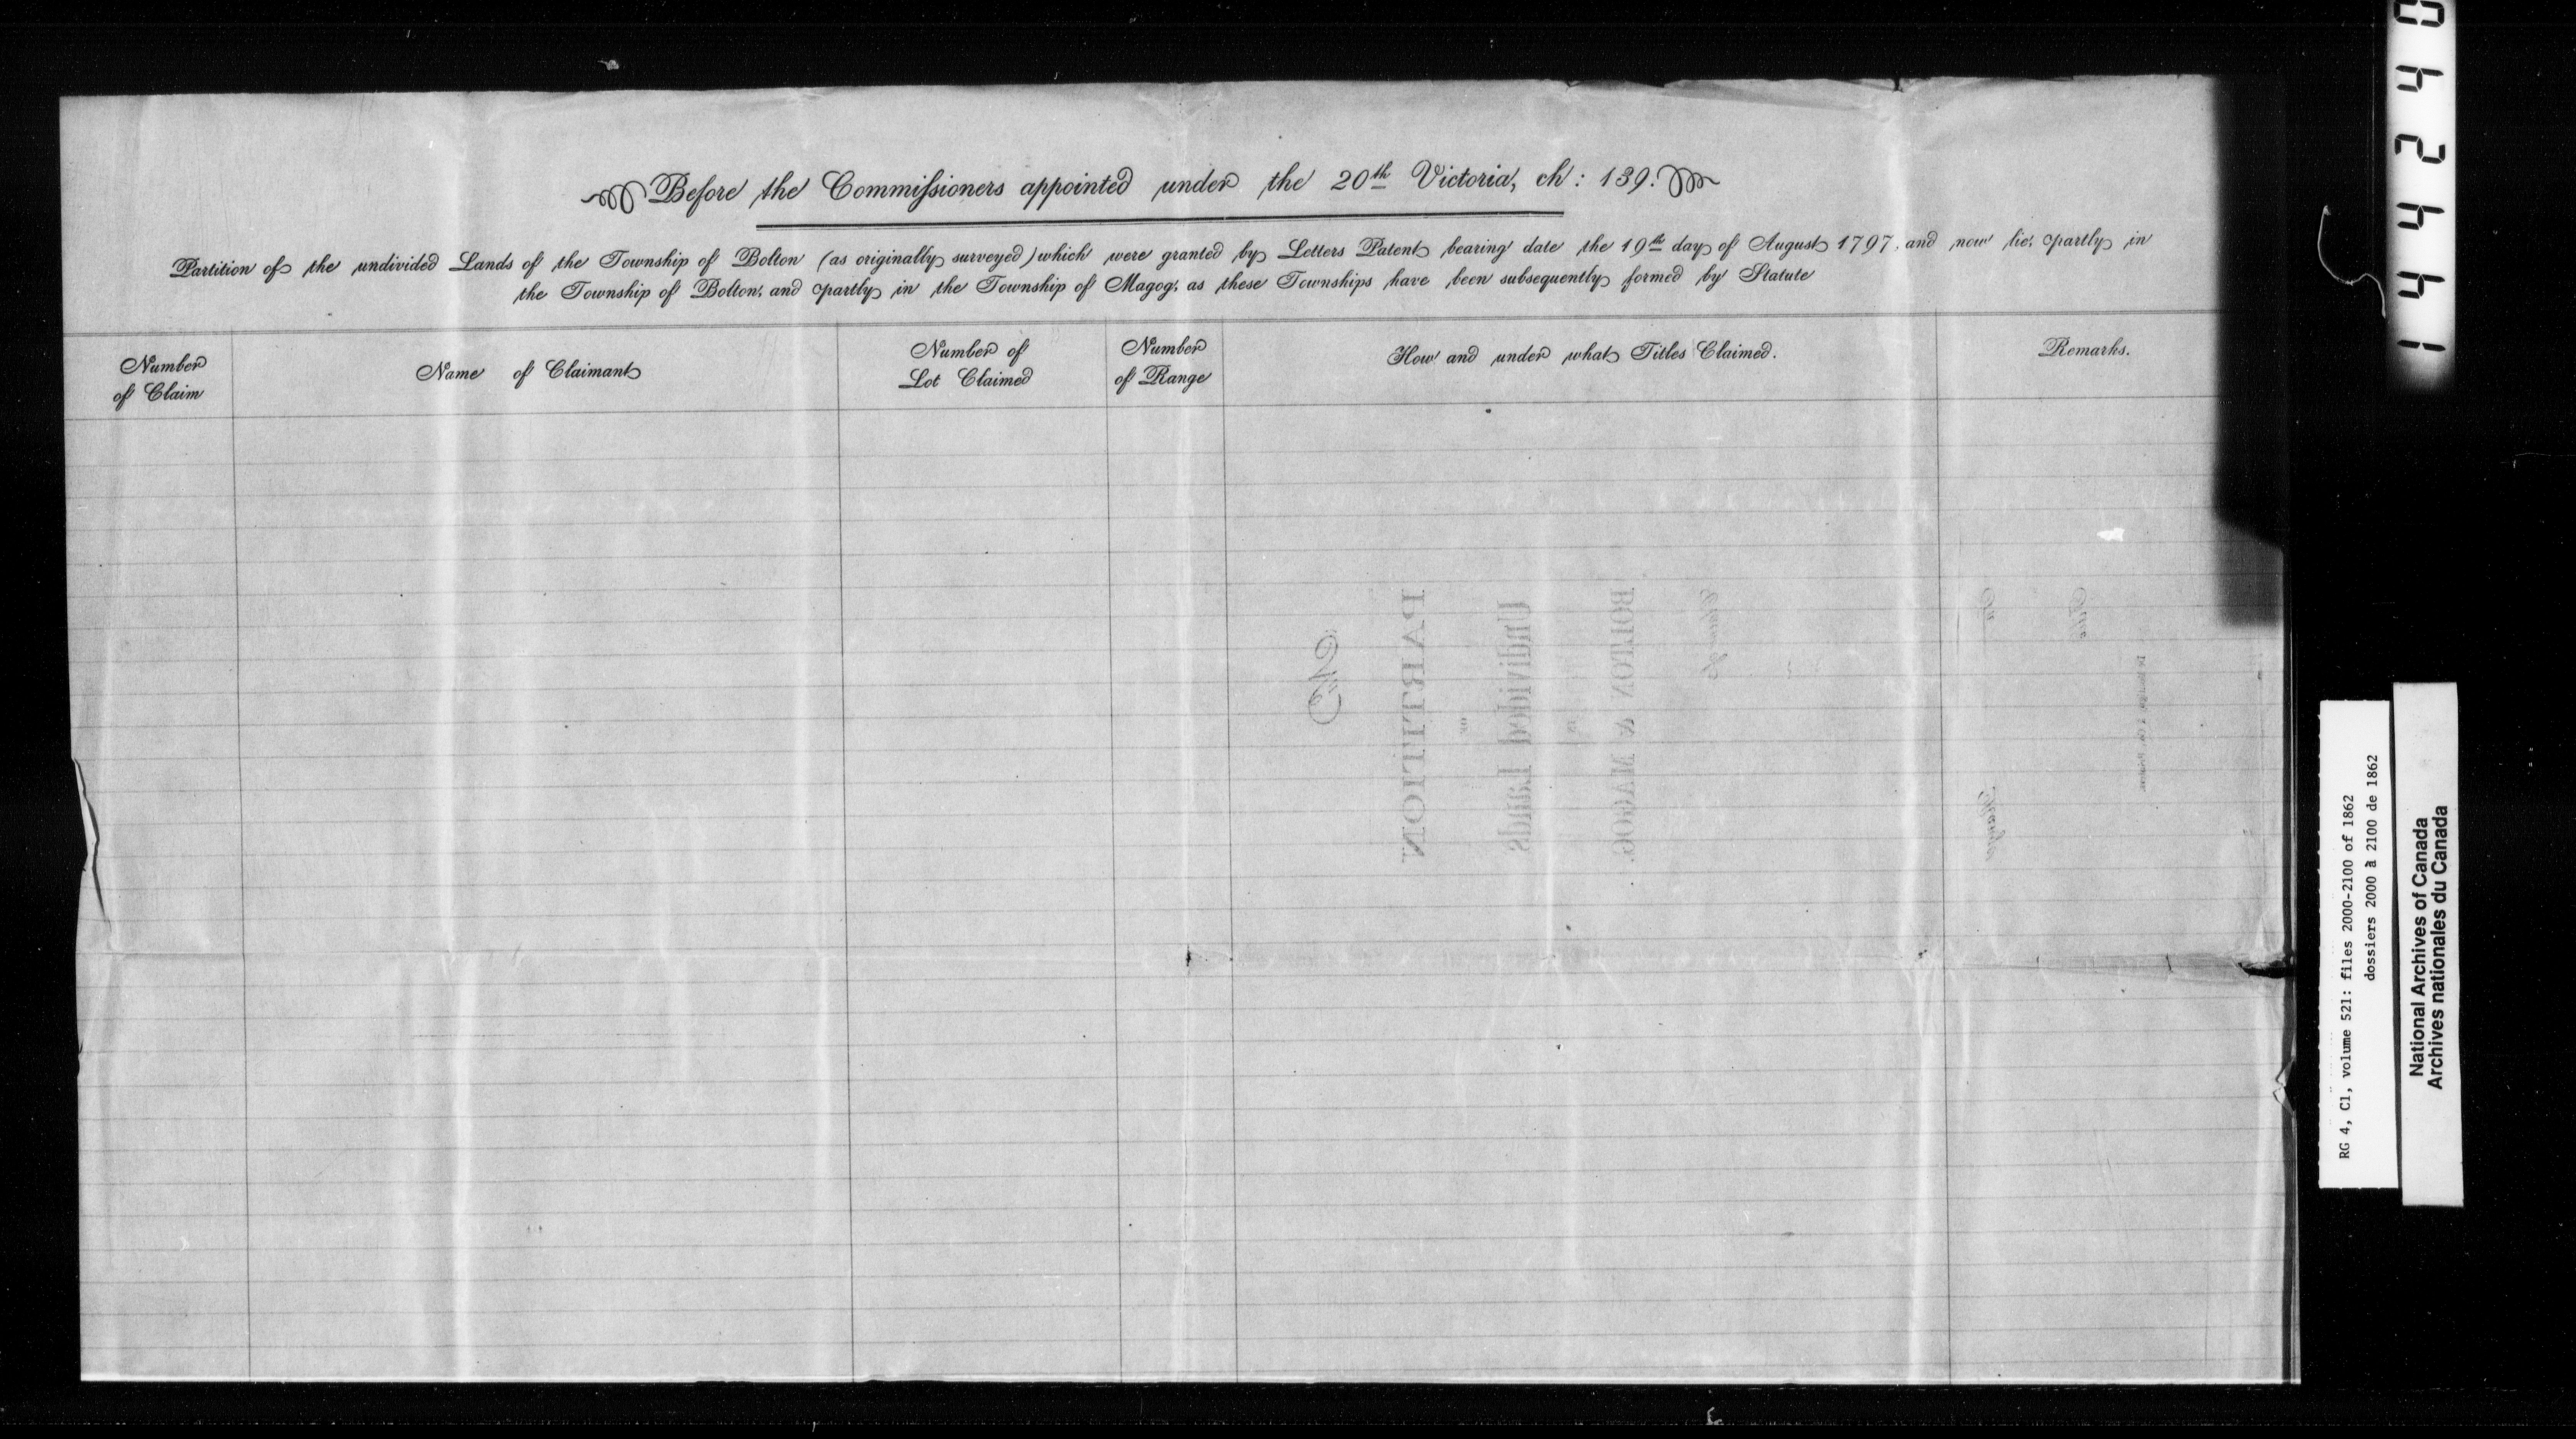 Before the Commissioners appointed under the 20th Victoria, ch: 139.
Partition of the undivided Lands of the Township of Bolton (as originally surveyed) which were granted by Letters Patent bearing date the 19th day of August 1797, and now lie, partly in
the Township of Bolton, and partly in the Township of Magog, as these Townships have been subsequently formed by Statute
Number
of Claim
Name of Claimant
Number of
Lot Claimed
Number
of Range
How and under what Titles Claimed.
Remarks.
No
PARTITION
OF
Undivided Lands
IN
BOLTON & MAGOG.
Claim of
Lot
Range
Filed
042441
RG 4, C1, volume 521: files 2000-2100 of 1862
dossiers 2000 à 2100 de 1862
National Archives of Canada
Archives nationales du Canada